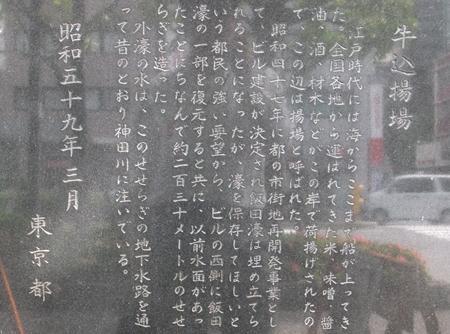 牛込揚場
江戸時代には海からここまで船が上ってき
た。全国各地から運ばれてきた米、味噌、醤
油、酒、材木などがこの岸で荷揚げされたの
で、この辺は揚場と呼ばれた。
昭和四十七年に都の市街地再開発事業とし
て、ビル建設が決定され飯田濠は埋め立てら
れることになったが、濠を保存してほしいと
いう都民の強い要望から、ビルの西側に飯田
濠の一部を復元すると共に、以前水面があっ
たことにちなんで約二百三十メートルのせせ
らぎを造った。
外濠の水は、このせせらぎの地下水路を通
って昔のとおり神田川に注いでいる。
昭和五十九年 三月
東京都